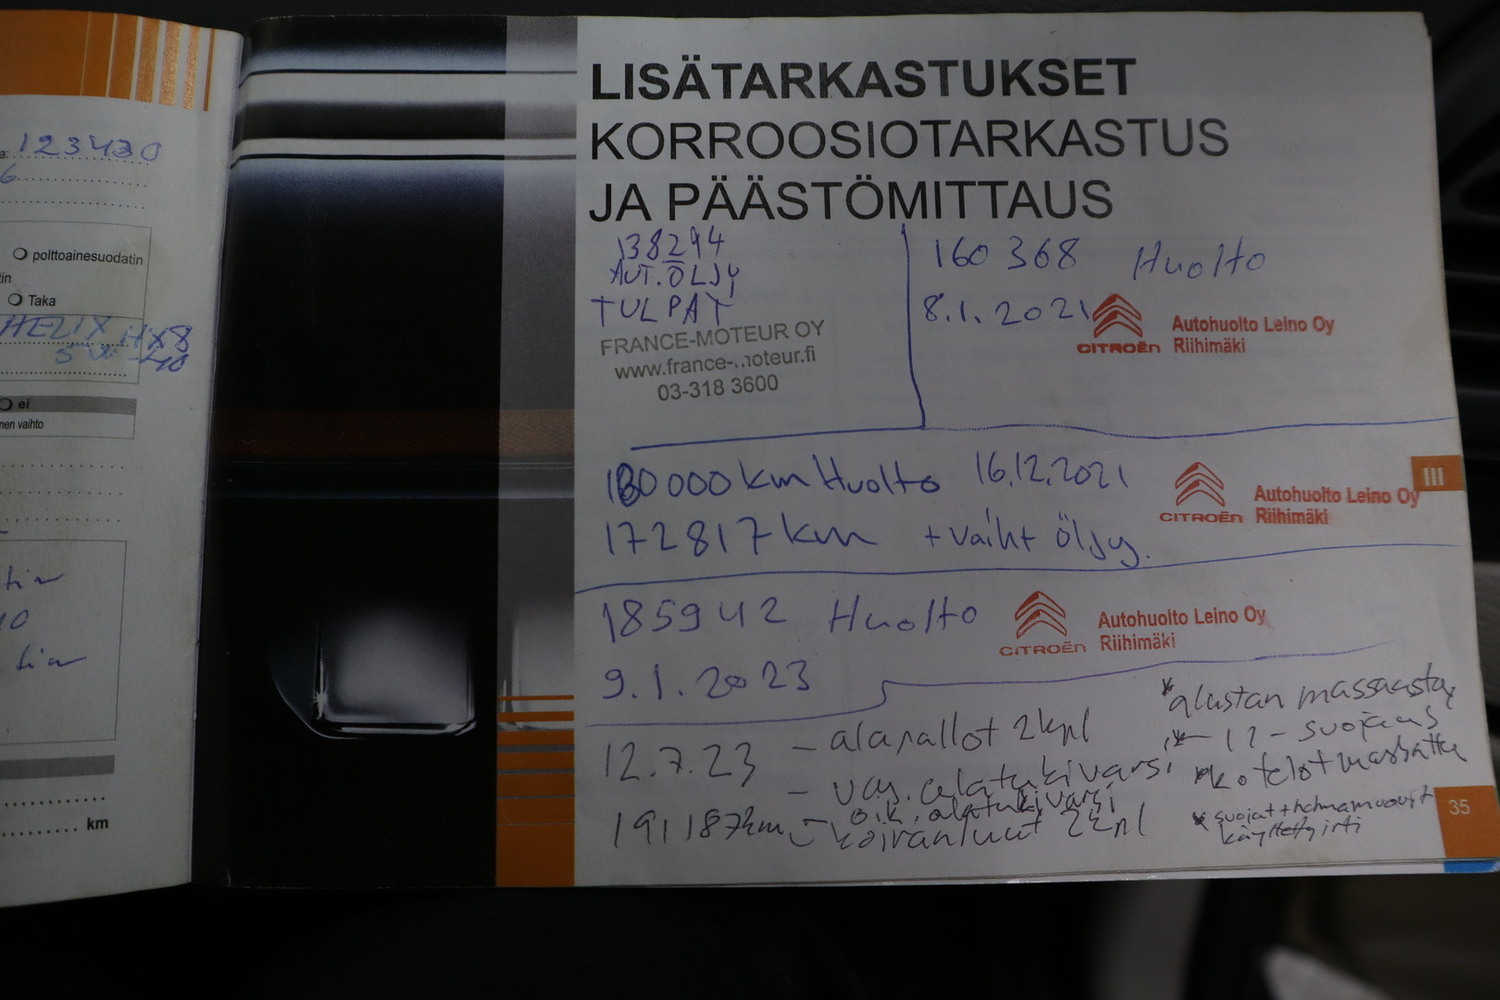 123430
6
polttoainesuodatin
tin
Taka
HELIX HX8
5W-40
ei
nen vaihto
10
km
LISÄTARKASTUKSET
KORROOSIOTARKASTUS
JA PÄÄSTÖMITTAUS
138294
AUT.ÖLJY
TULPAT
FRANCE-MOTEUR OY
www.france-moteur.fi
03-318 3600
160 368 Huolto
8.1.2021
CITROËN
Autohuolto Leino Oy
Riihimäki
180 000 km Huolto 16.12.2021
172817 km + vaiht öljy.
CITROËN
Autohuolto Leino Oy
Riihimäki
III
185942 Huolto
9.1.2023
CITROËN
Autohuolto Leino Oy
Riihimäki
12.7.23 - alapallot 2kpl
- vas. alatukivarsi
191187km - oik. alatukivarsi
- koiranluut 2kpl
* alustan massaus
* -11- suojaus
* kotelot massattu
* suojat + helmamuovit
käytetty irti
35